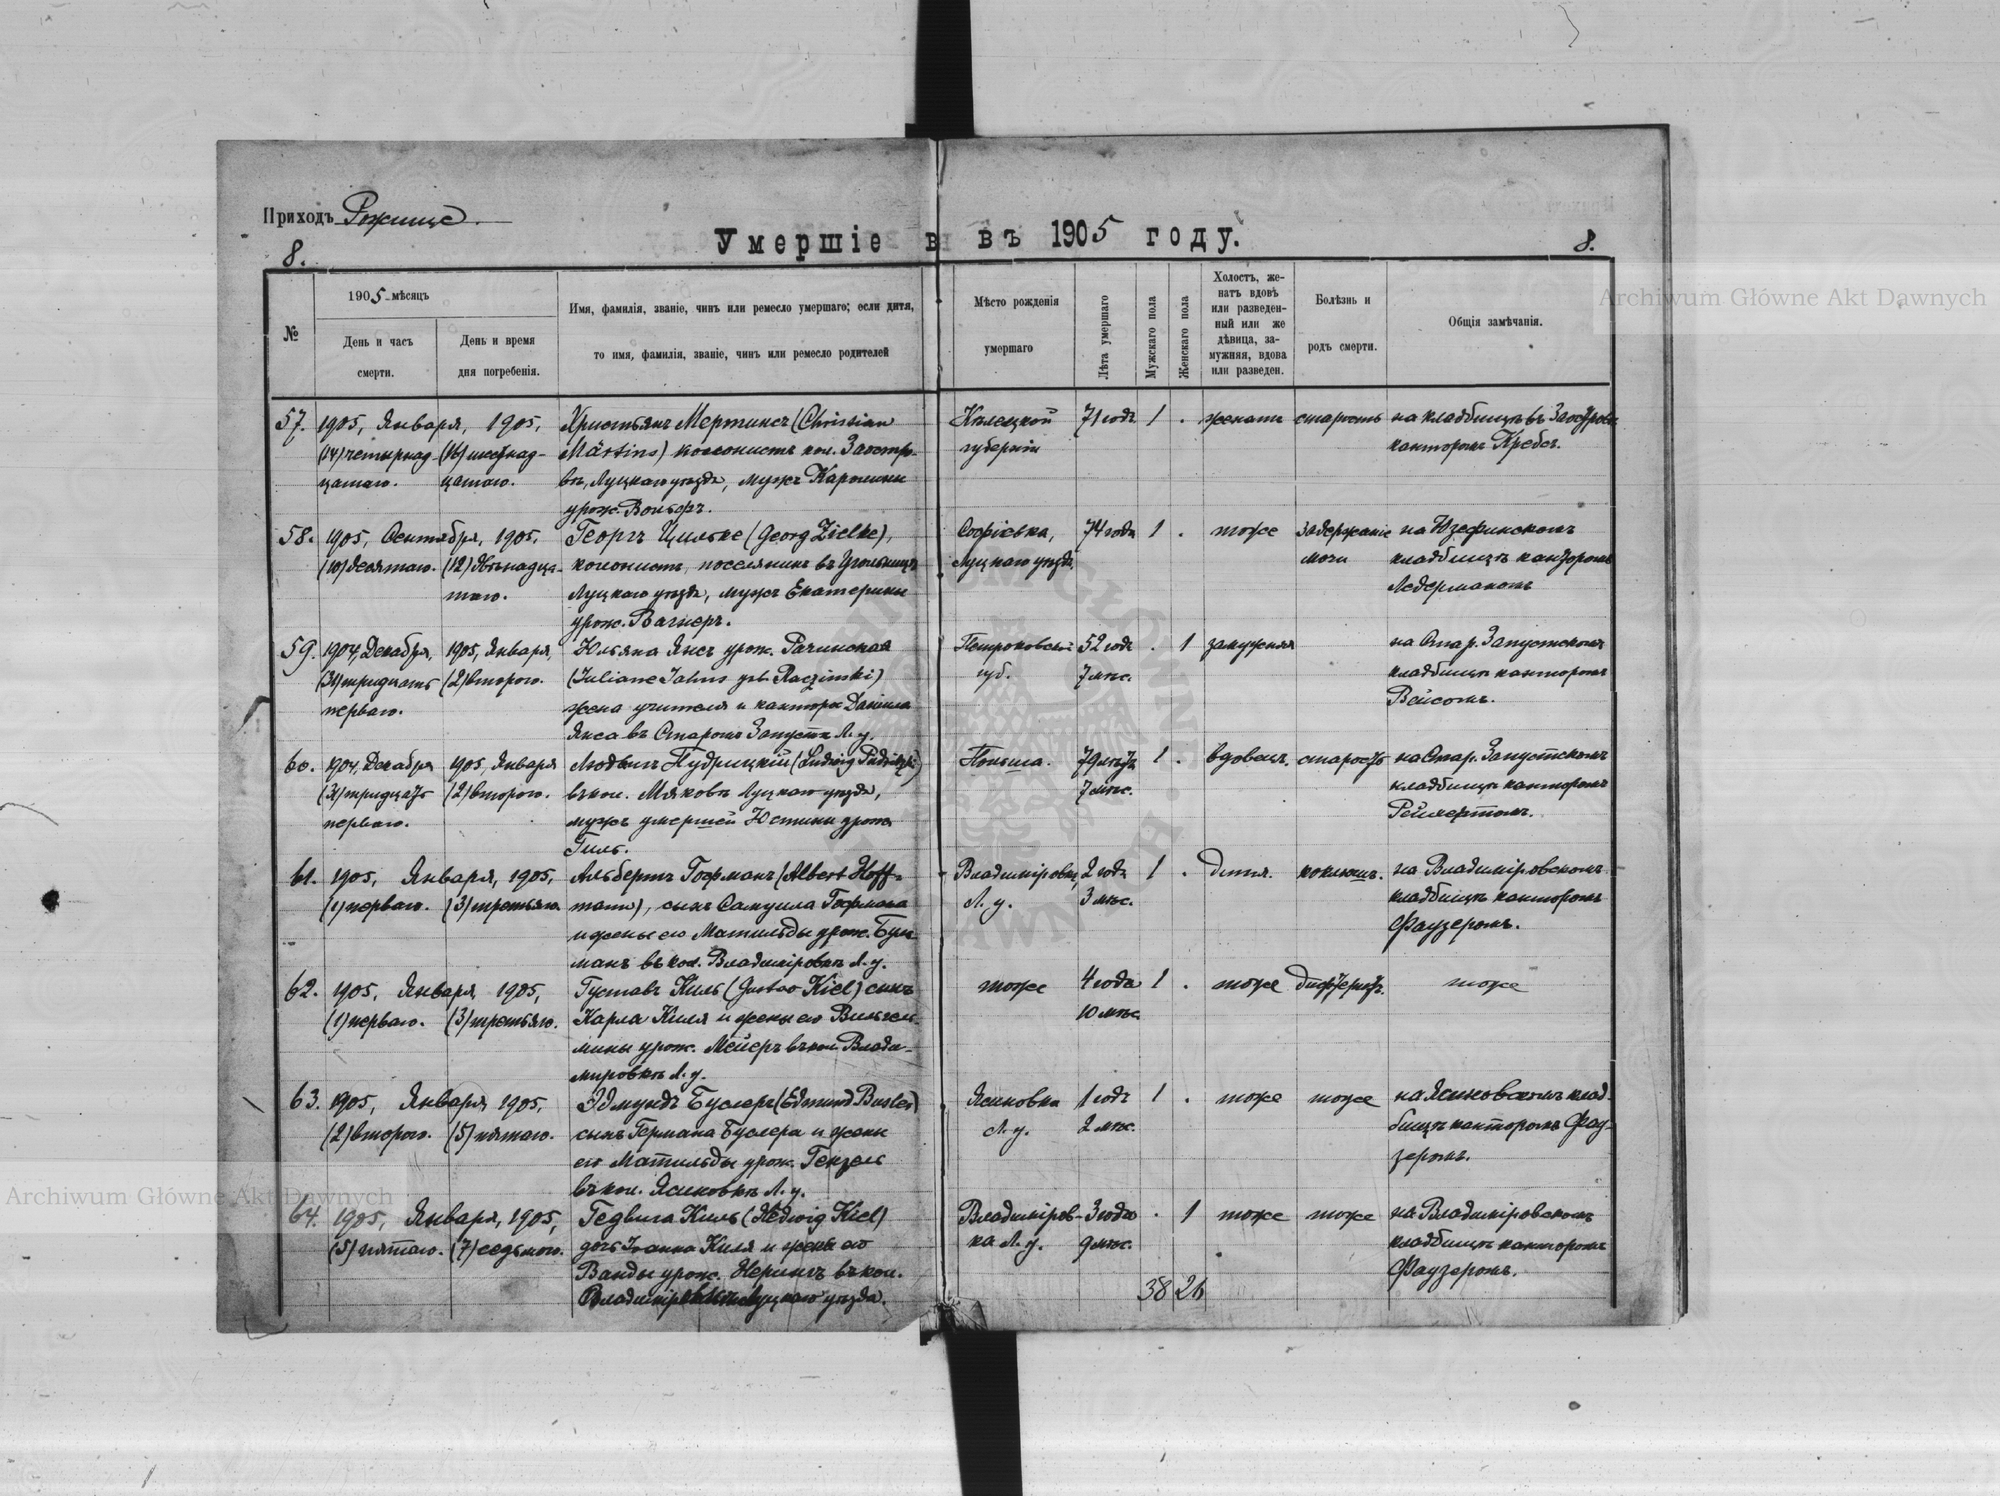 Приходъ Рожище.
Умершіе въ 1905 году.
8.
8.
№
1905 мѣсяцъ
День и часъ
смерти.
День и время
дня погребенія.
Имя, фамилія, званіе, чинъ или ремесло умершаго; если дитя,
то имя, фамилія, званіе, чинъ или ремесло родителей
Мѣсто рожденія
умершаго
Лѣта умершаго
Мужскаго пола
Женскаго пола
Холостъ, же-
натъ вдовъ
или разведен-
ный или же
дѣвица, за-
мужняя, вдова
или разведен.
Болѣзнь и
родъ смерти.
Общія замѣчанія.
57. 1905, Января, 1905,
(14) четырнад- (16) шестнад-
цатаго. цатаго.
Христьянъ Мертинсъ (Christian
Märtins) колонистъ кол. Заостро-
въ, Луцкаго уѣзда, мужъ Каролины
урож. Вольфъ.
Кѣлецкой 71 годъ 1 . женатъ старость на кладбищѣ въ
губерніи канторомъ Кребсъ.
58. 1905, Сентября, 1905,
(10) десятаго. (12) двѣнадца-
таго.
Георгъ Цильке (Georg Zielke),
колонистъ, поселянинъ въ
Луцкаго уѣзда, мужъ Екатерины
урож. Вагнеръ.
Софіевка, 74 года 1 . тоже задержаніе на Юзефинскомъ
Луцкаго уѣзда. мочи кладбищѣ канторомъ
Ледерманомъ
59. 1904 Декабря, 1905, Января,
(31) тридцать (2) второго.
перваго.
Юльяна Янсъ урож. Рачинская
(Juliane Jahns geb. Raczinski)
жена учителя и кантора Даніила
Янса въ Старомъ Запустѣ Л. у.
Петроковской 52 года . 1 замужняя на Стар. Запустскомъ
губ. 7 мѣс. кладбищѣ канторомъ
Вейсомъ.
60. 1904, Декабря 1905, Января
(31) тридцать (2) второго.
перваго.
Людвигъ Пудрицкій (Ludwig Pudritzki)
въ кол. Мяковъ Луцкаго уѣзда,
мужъ умершей Юстины урож.
Гиль.
Польша. 79 лѣтъ 1 . вдовецъ. старость на Стар. Запустскомъ
7 мѣс. кладбищѣ канторомъ
61. 1905, Января, 1905,
(1) перваго. (3) третьяго.
Альбертъ Гофманъ (Albert Hoff-
mann), сынъ Самуила Гофмана
и жены его Матильды урож. Бул-
манъ въ кол. Владиміровкѣ Л. у.
Владиміровка, 2 года 1 . дитя. коклюшъ. на Владиміровскомъ
Л. у. 3 мѣс. кладбищѣ канторомъ
Фаузеромъ.
62. 1905, Января, 1905,
(1) перваго. (3) третьяго.
Густавъ Киль (Gustav Kiel) сынъ
Карла Киля и жены его Вильгель-
мины урож. Мейеръ въ кол. Влади-
мировкѣ Л. у.
тоже 4 года 1 . тоже дифтеритъ. тоже
10 мѣс.
63. 1905, Января, 1905,
(2) второго. (5) пятаго.
Эдмундъ Буслеръ (Edmund Busler)
сынъ Германа Буслера и жены
его Матильды урож. Гензель
въ кол. Ясиновкѣ Л. у.
Ясиновка 1 годъ 1 . тоже тоже на Ясиновскомъ клад-
Л. у. 2 мѣс. бищѣ канторомъ Фау-
зеромъ.
64. 1905, Января, 1905,
(5) пятаго. (7) седьмого.
Гедвига Киль (Hedwig Kiel)
дочь Іоанна Киля и жены его
Ванды урож. Нерлихъ въ кол.
Владиміровкѣ Луцкаго уѣзда.
Владиміров- 3 года . 1 тоже тоже на Владиміровскомъ
ка Л. у. 9 мѣс. кладбищѣ канторомъ
Фаузеромъ.
38 26
Archiwum Główne Akt Dawnych
Archiwum Główne Akt Dawnych